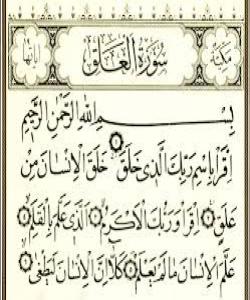 مكية سورة العلق آياتها
بسم الله الرحمن الرحيم
اقرأ باسم ربك الذي خلق خلق الإنسان من
علق اقرأ وربك الأكرم الذي علم بالقلم
علم الإنسان ما لم يعلم كلا إن الإنسان ليطغى